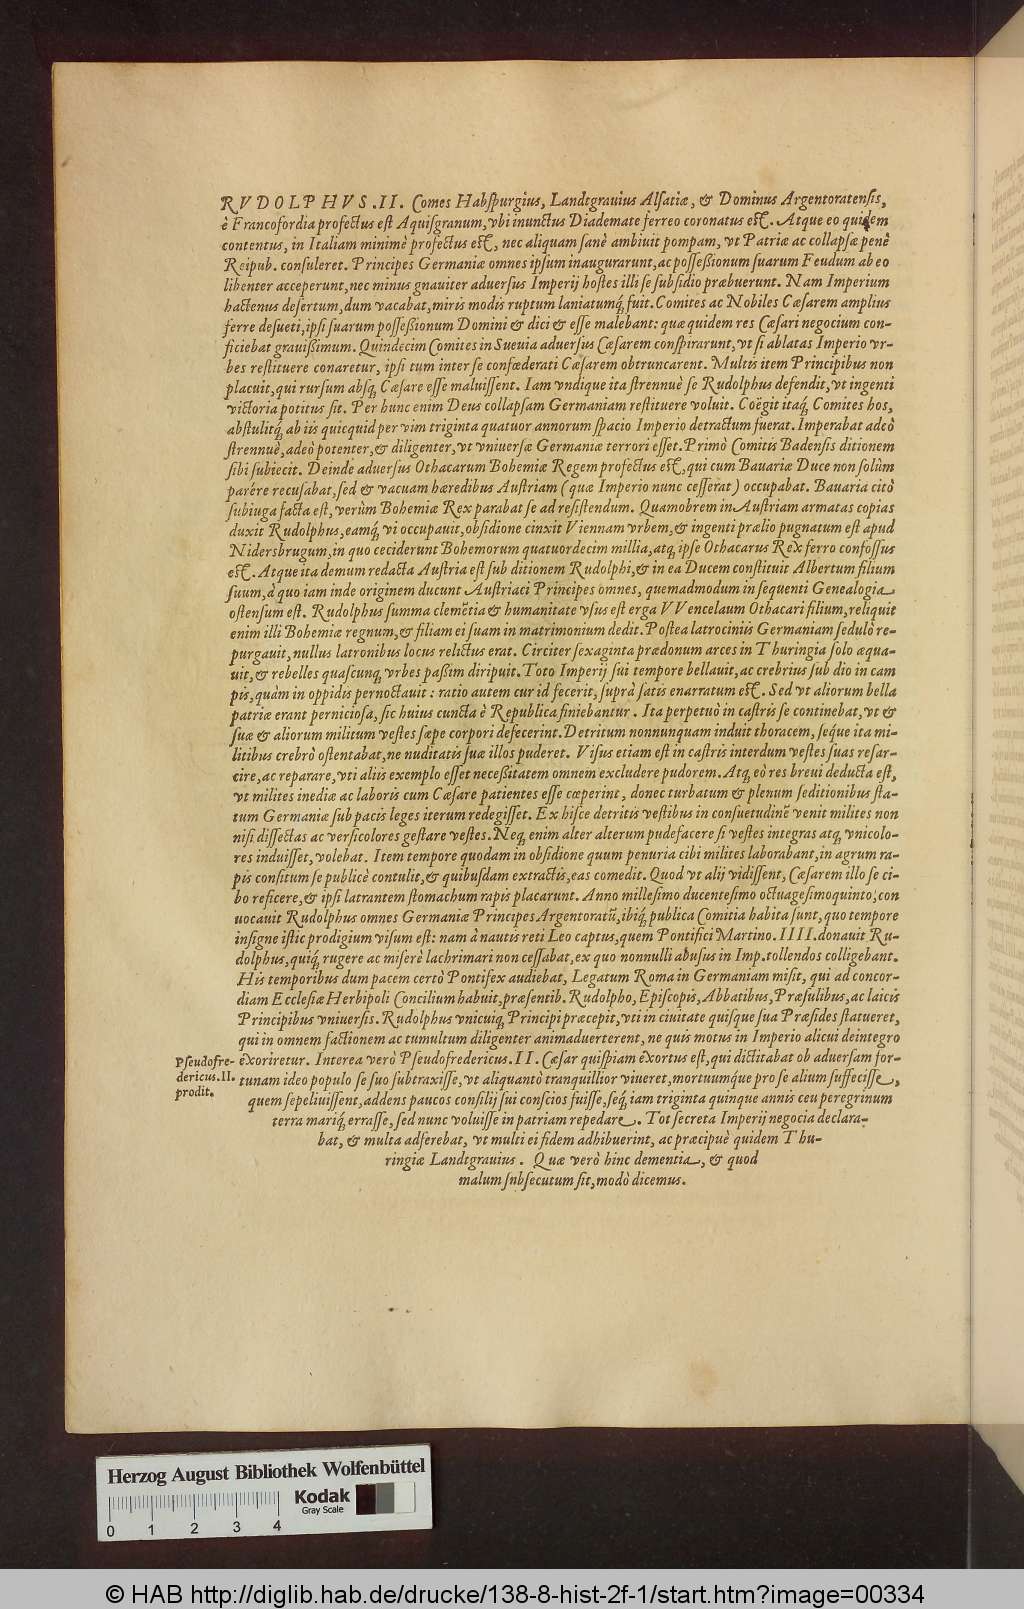 RVDOLPHVS. II. Comes Habſpurgius, Landtgrauius Alſatiæ, & Dominus Argentoratenſis,
è Francofordia profectus eſt Aquiſgranum, vbi inunctus Diademate ferreo coronatus eſt. Atque eo quidem
contentus, in Italiam minimè profectus eſt, nec aliquam ſanè ambiuit pompam, vt Patriæ ac collapſæ penè
Reipub. conſuleret. Principes Germaniæ omnes ipſum inaugurarunt, ac poſſeßionum ſuarum Feudum ab eo
libenter acceperunt, nec minus gnauiter aduerſus Imperij hoſtes illi ſe ſubſidio præbuerunt. Nam Imperium
hactenus deſertum, dum vacabat, miris modis ruptum laniatumq́; fuit. Comites ac Nobiles Cæſarem amplius
ferre deſueti, ipſi ſuarum poſſeßionum Domini & dici & eſſe malebant: quæ quidem res Cæſari negocium con-
ficiebat grauißimum. Quindecim Comites in Sueuia aduerſus Cæſarem conſpirarunt, vt ſi ablatas Imperio vr-
bes reſtituere conaretur, ipſi tum inter ſe confœderati Cæſarem obtruncarent. Multis item Principibus non
placuit, qui rurſum abſq; Cæſare eſſe maluiſſent. Iam vndique ita ſtrennuè ſe Rudolphus defendit, vt ingenti
victoria potitus ſit. Per hunc enim Deus collapſam Germaniam reſtituere voluit. Coëgit itaq́; Comites hos,
abſtulitq́; ab iis quicquid per vim triginta quatuor annorum ſpacio Imperio detractum fuerat. Imperabat adeò
ſtrennuè, adeò potenter, & diligenter, vt vniuerſæ Germaniæ terrori eſſet. Primò Comitis Badenſis ditionem
ſibi ſubiecit. Deinde aduerſus Othacarum Bohemiæ Regem profectus eſt, qui cum Bauariæ Duce non ſolùm
parére recuſabat, ſed & vacuam hæredibus Auſtriam (quæ Imperio nunc ceſſerat) occupabat. Bauaria citò
ſubiuga facta eſt, verùm Bohemiæ Rex parabat ſe ad reſiſtendum. Quamobrem in Auſtriam armatas copias
duxit Rudolphus, eamq́; vi occupauit, obſidione cinxit Viennam vrbem, & ingenti prælio pugnatum eſt apud
Niderſbrugum, in quo ceciderunt Bohemorum quatuordecim millia, atq; ipſe Othacarus Rex ferro confoſſus
eſt. Atque ita demum redacta Auſtria eſt ſub ditionem Rudolphi, & in ea Ducem conſtituit Albertum filium
ſuum, à quo iam inde originem ducunt Auſtriaci Principes omnes, quemadmodum in ſequenti Genealogia
oſtenſum eſt. Rudolphus ſumma clemẽtia & humanitate vſus eſt erga VVencelaum Othacari filium, reliquit
enim illi Bohemiæ regnum, & filiam ei ſuam in matrimonium dedit. Poſtea latrociniis Germaniam ſedulò re-
purgauit, nullus latronibus locus relictus erat. Circiter ſexaginta prædonum arces in Thuringia ſolo æqua-
uit, & rebelles quaſcunq; vrbes paßim diripuit. Toto Imperij ſui tempore bellauit, ac crebrius ſub dio in cam
pis, quàm in oppidis pernoctauit: ratio autem cur id fecerit, ſuprà ſatis enarratum eſt. Sed vt aliorum bella
patriæ erant pernicioſa, ſic huius cuncta è Republica finiebantur. Ita perpetuò in caſtris ſe continebat, vt &
ſuæ & aliorum militum veſtes ſæpe corpori defecerint. Detritum nonnunquam induit thoracem, ſeque ita mi-
litibus crebrò oſtentabat, ne nuditatis ſuæ illos puderet. Viſus etiam eſt in caſtris interdum veſtes ſuas reſar-
cire, ac reparare, vti aliis exemplo eſſet neceßitatem omnem excludere pudorem. Atq; eò res breui deducta eſt,
vt milites inediæ ac laboris cum Cæſare patientes eſſe cœperint, donec turbatum & plenum ſeditionibus ſta-
tum Germaniæ ſub pacis leges iterum redegiſſet. Ex hiſce detritis veſtibus in conſuetudinẽ venit milites non
niſi diſſectas ac verſicolores geſtare veſtes. Neq; enim alter alterum pudefacere ſi veſtes integras atq; vnicolo-
res induiſſet, volebat. Item tempore quodam in obſidione quum penuria cibi milites laborabant, in agrum ra-
pis conſitum ſe publicè contulit, & quibuſdam extractis, eas comedit. Quod vt alij vidiſſent, Cæſarem illo ſe ci-
bo reficere, & ipſi latrantem ſtomachum rapis placarunt. Anno milleſimo ducenteſimo octuageſimoquinto, con
uocauit Rudolphus omnes Germaniæ Principes Argentoratũ, ibiq́; publica Comitia habita ſunt, quo tempore
inſigne iſtic prodigium viſum eſt: nam à nautis reti Leo captus, quem Pontifici Martino. IIII. donauit Ru-
dolphus, quiq́; rugere ac miſerè lachrimari non ceſſabat, ex quo nonnulli abuſus in Imp. tollendos colligebant.
His temporibus dum pacem certò Pontifex audiebat, Legatum Roma in Germaniam miſit, qui ad concor-
diam Eccleſiæ Herbipoli Concilium habuit, præſentib. Rudolpho, Epiſcopis, Abbatibus, Præſulibus, ac laicis
Principibus vniuerſis. Rudolphus vnicuiq; Principi præcepit, vti in ciuitate quiſque ſua Præſides ſtatueret,
qui in omnem factionem ac tumultum diligenter animaduerterent, ne quis motus in Imperio alicui deintegro
exoriretur. Interea verò Pſeudofredericus. II. Cæſar quiſpiam exortus eſt, qui dictitabat ob aduerſam for-
tunam ideo populo ſe ſuo ſubtraxiſſe, vt aliquantò tranquillior viueret, mortuumq́ue pro ſe alium ſuffeciſſe,
quem ſepeliuiſſent, addens paucos conſilij ſui conſcios fuiſſe, ſeq́; iam triginta quinque annis ceu peregrinum
terra mariq́; erraſſe, ſed nunc voluiſſe in patriam repedare. Tot ſecreta Imperij negocia declara-
bat, & multa adſerebat, vt multi ei fidem adhibuerint, ac præcipuè quidem Thu-
ringiæ Landtgrauius. Quæ verò hinc dementia, & quod
malum ſubſecutum ſit, modò dicemus.
Pſeudofre-
dericus. II.
prodit.
Herzog August Bibliothek Wolfenbüttel
Kodak
Gray Scale
0 1 2 3 4
© HAB http://diglib.hab.de/drucke/138-8-hist-2f-1/start.htm?image=00334